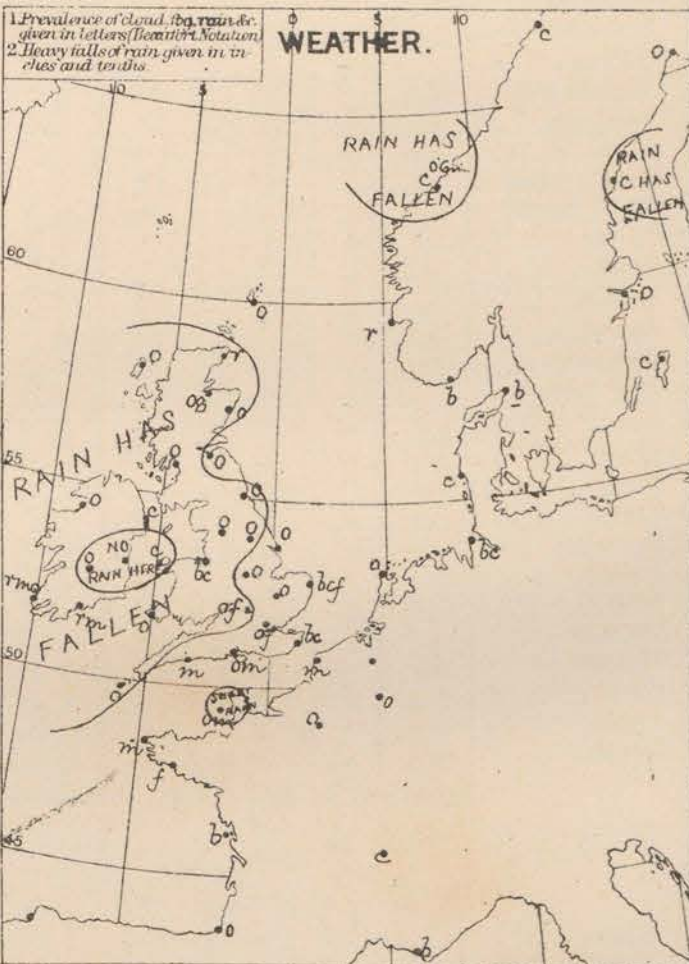 1. Prevalence of cloud, fog, rain &c.
given in letters (Beaufort Notation)
2. Heavy falls of rain given in in-
ches and tenths.
WEATHER.
10
5
0
5
10
c
o
RAIN HAS
c
FALLEN
RAIN
C HAS
FALLEN
60
o
o
r
c
o
r
b
b
og
o
RAIN HAS
55
o
o
c
o
o
c
o
o
o
NO
o
c
RAIN HERE
bc
bc
o
o
bcf
o
rm
rm
o
of
FALLEN
of
bc
50
m
om
m
o
SOME
RAIN
om
o
o
m
f
b
45
c
o
b